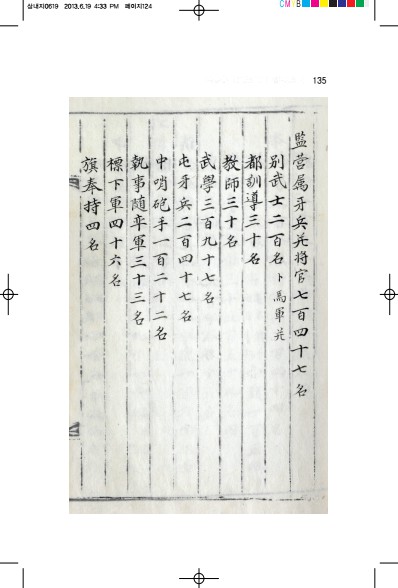 삼내지0619 2013.6.19 4:33 PM 페이지124
CMYB
135
監营属牙兵并将官七百四十七名
别武士二百名卜馬軍并
都訓導三十名
教師三十名
武學三百九十七名
屯牙兵二百四十七名
中哨砲手一百二十二名
執事随率軍三十三名
標下軍四十六名
旗奉持四名